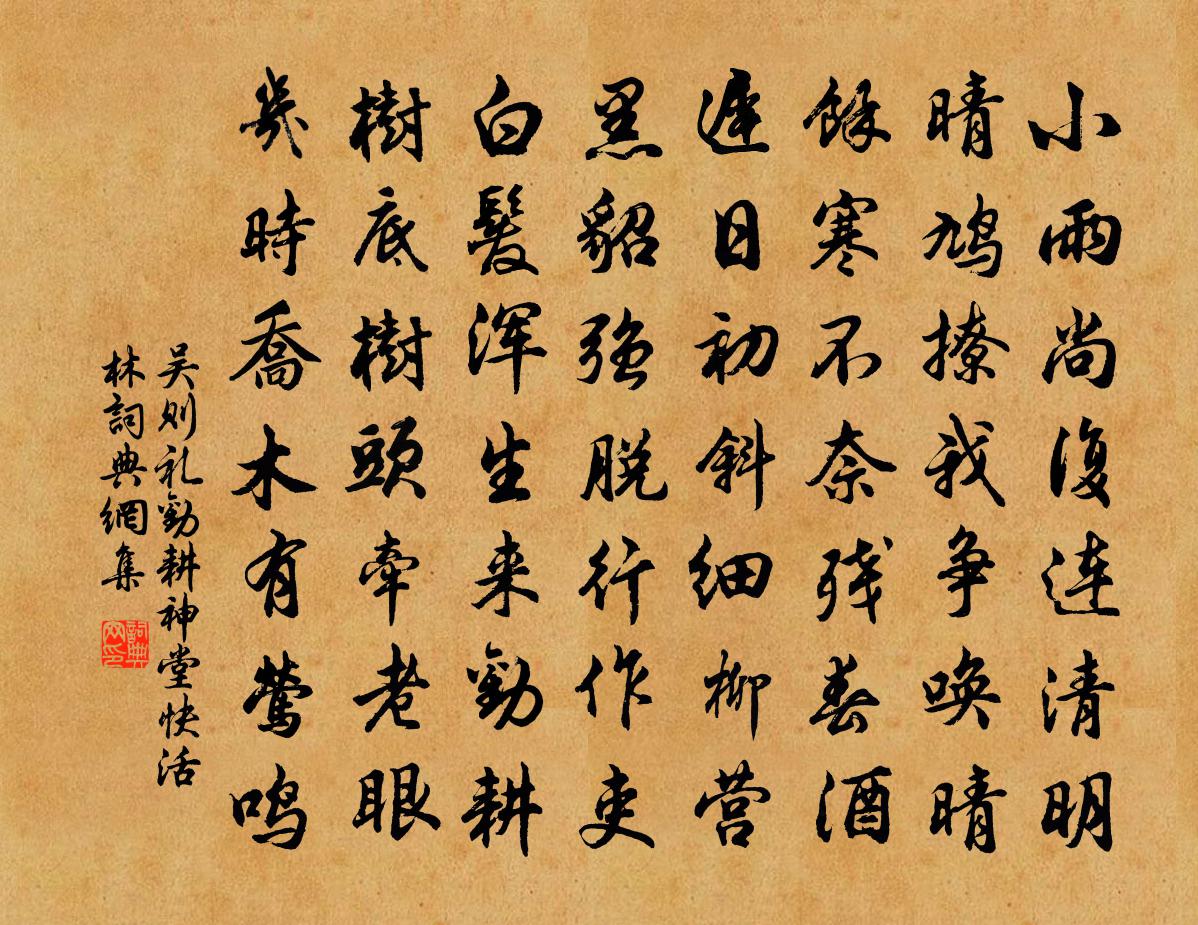 小雨尚復连清明
晴鸠撩我争唤晴
餘寒不奈残春酒
遲日初斜细柳营
黑貂强脱行作吏
白髮浑生来勸耕
樹底樹頭牵老眼
幾時喬木有莺鸣
吴则礼勸耕神堂快活
林詞典網集
詞典
网印